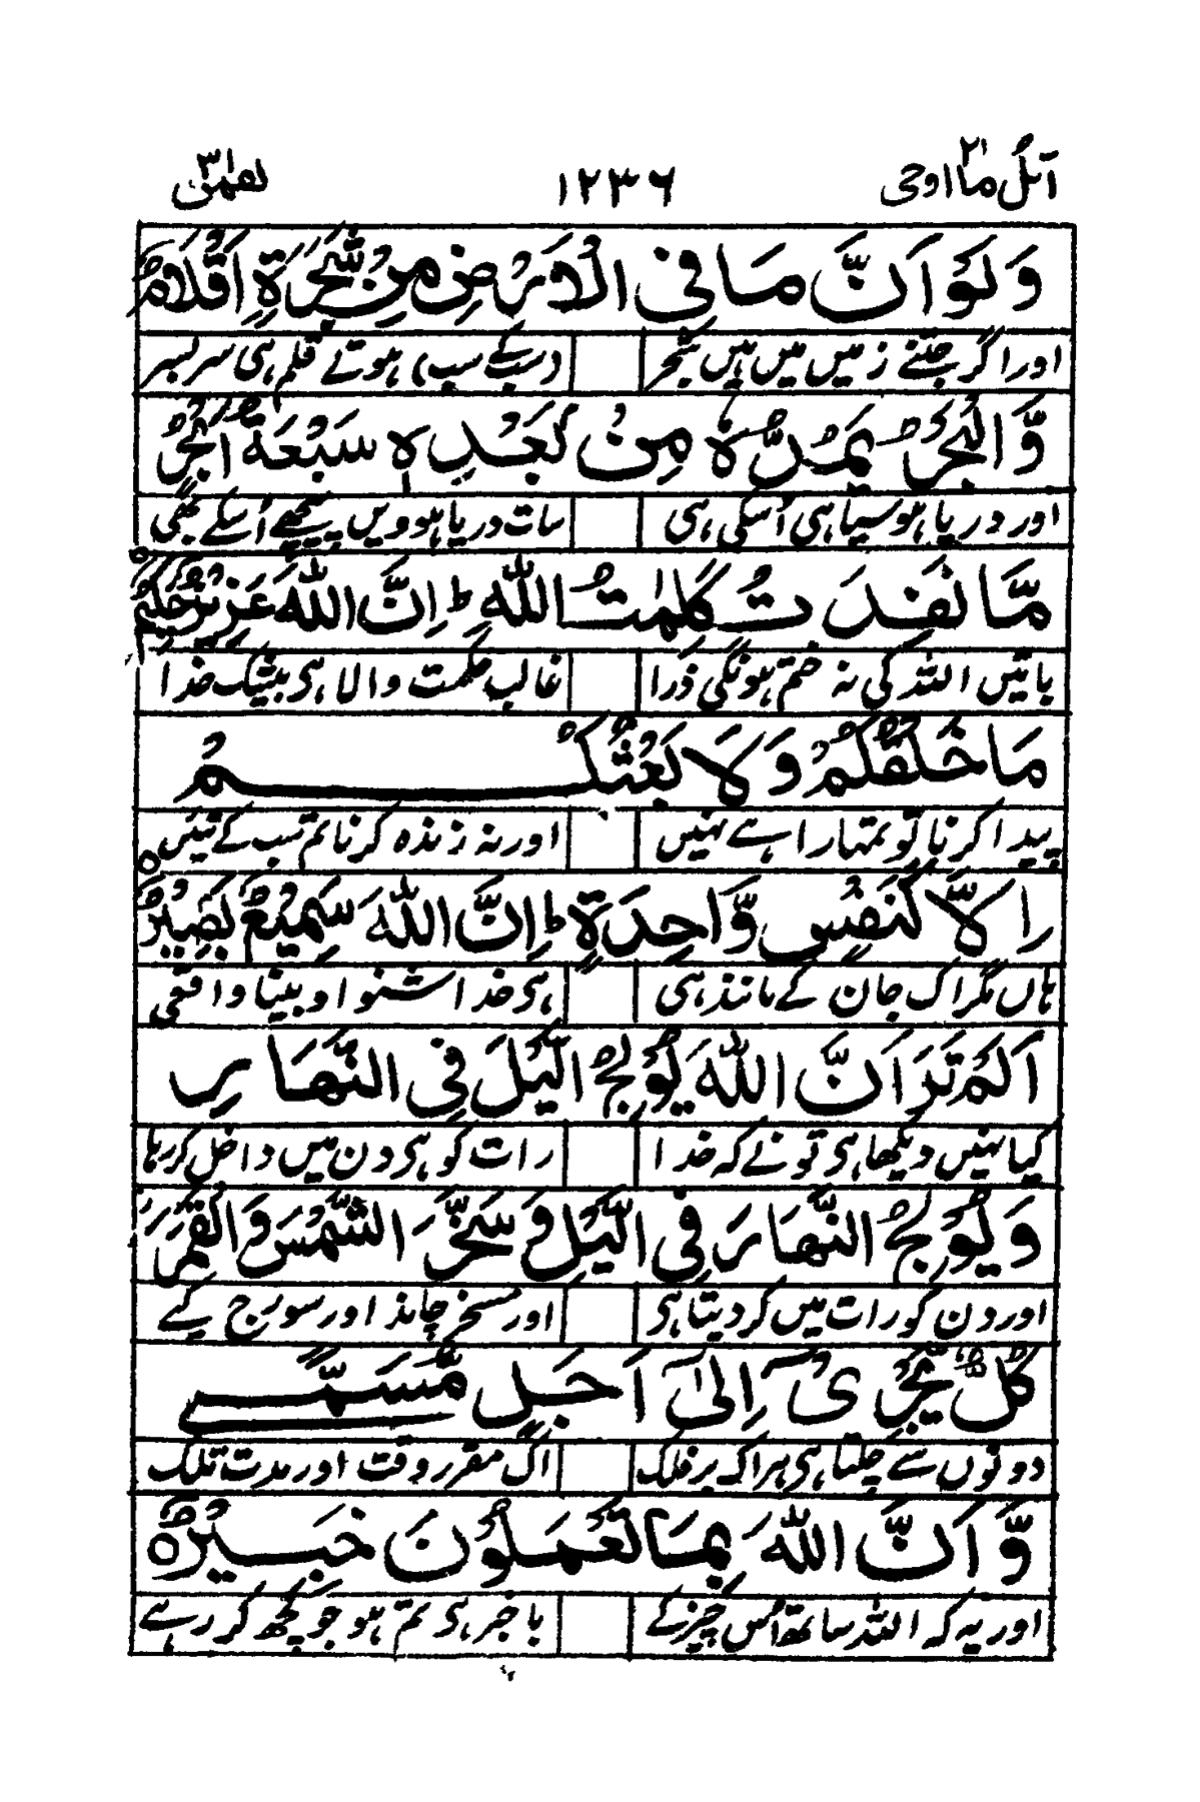 اتل ما اوحی ۲۱ ۱۲۳۶ لقمٰن ۳۱
وَلَوْ اَنَّ مَا فِی الْاَرْضِ مِنْ شَجَرَةٍ اَقْلَامٌ
اور اگر جتنے زمیں میں ہیں شجر (سب کے سب) ہوتے قلم ہی سر بسر
وَّالْبَحْرُ یَمُدُّهٗ مِنْۢ بَعْدِهٖ سَبْعَةُ اَبْحُرٍ
اور دریا ہو سیاہی اُسکی ہی سات دریا ہوویں پیچھے اُسکے بھی
مَّا نَفِدَتْ كَلِمٰتُ اللّٰهِ ؕ اِنَّ اللّٰهَ عَزِیْزٌ حَكِیْمٌ ○
باتیں اللہ کی نہ ختم ہونگی ذرا غالب حکمت والا ہی بیشک خدا
مَا خَلْقُكُمْ وَلَا بَعْثُكُمْ
پیدا کرنا تو تمہارا ہے نہیں اور نہ زندہ کرنا تم سب کے تئیں
اِلَّا كَنَفْسٍ وَّاحِدَةٍ ؕ اِنَّ اللّٰهَ سَمِیْعٌۢ بَصِیْرٌ ○
ہاں مگر اک جان کے مانند ہی ہی خدا شنوا و بینا واقعی
اَلَمْ تَرَ اَنَّ اللّٰهَ یُوْلِجُ الَّیْلَ فِی النَّهَارِ
کیا نہیں دیکھا ہی تو نے کہ خدا رات کو ہی دن میں داخل کر رہا
وَیُوْلِجُ النَّهَارَ فِی الَّیْلِ وَسَخَّرَ الشَّمْسَ وَالْقَمَرَ
اور دن کو رات میں کر دیتا ہی اور مسخر چاند اور سورج کیے
كُلٌّ یَّجْرِیْۤ اِلٰۤی اَجَلٍ مُّسَمًّی
دونوں سے چلتا ہی ہر اک بر فلک اک مقرر وقت اور مدت تلک
وَّاَنَّ اللّٰهَ بِمَا تَعْمَلُوْنَ خَبِیْرٌ ○
اور یہ کہ اللہ ساتھ اُس چیز کے با خبر ہی تم ہو جو کچھ کر رہے